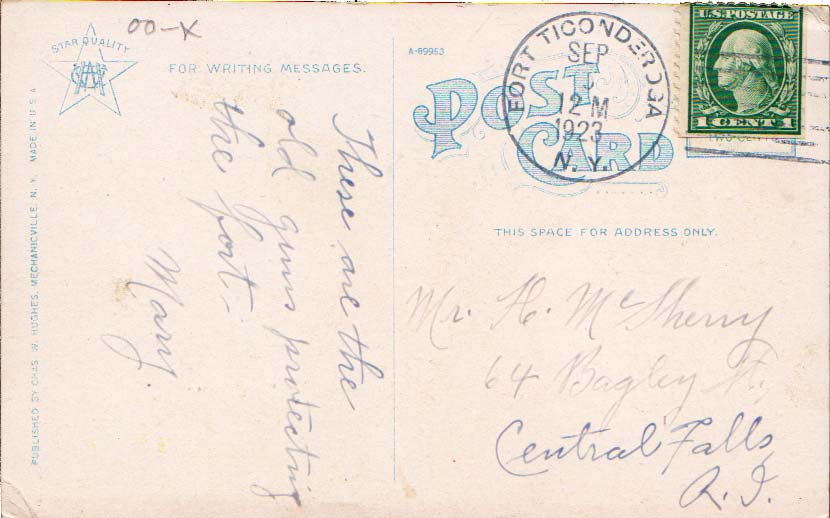 00-X
STAR QUALITY
FOR WRITING MESSAGES.
A-89953
POST
CARD
FORT TICONDEROGA
SEP
12 M
1923
N. Y.
U.S. POSTAGE
1 CENT 1
THIS SPACE FOR ADDRESS ONLY.
These are the
old guns protecting
the fort-
Mary.
Mr. H. McSherry
64 Bagley St.,
Central Falls,
R.I.
PUBLISHED BY CHAS. W. HUGHES, MECHANICVILLE, N. Y. MADE IN U S A